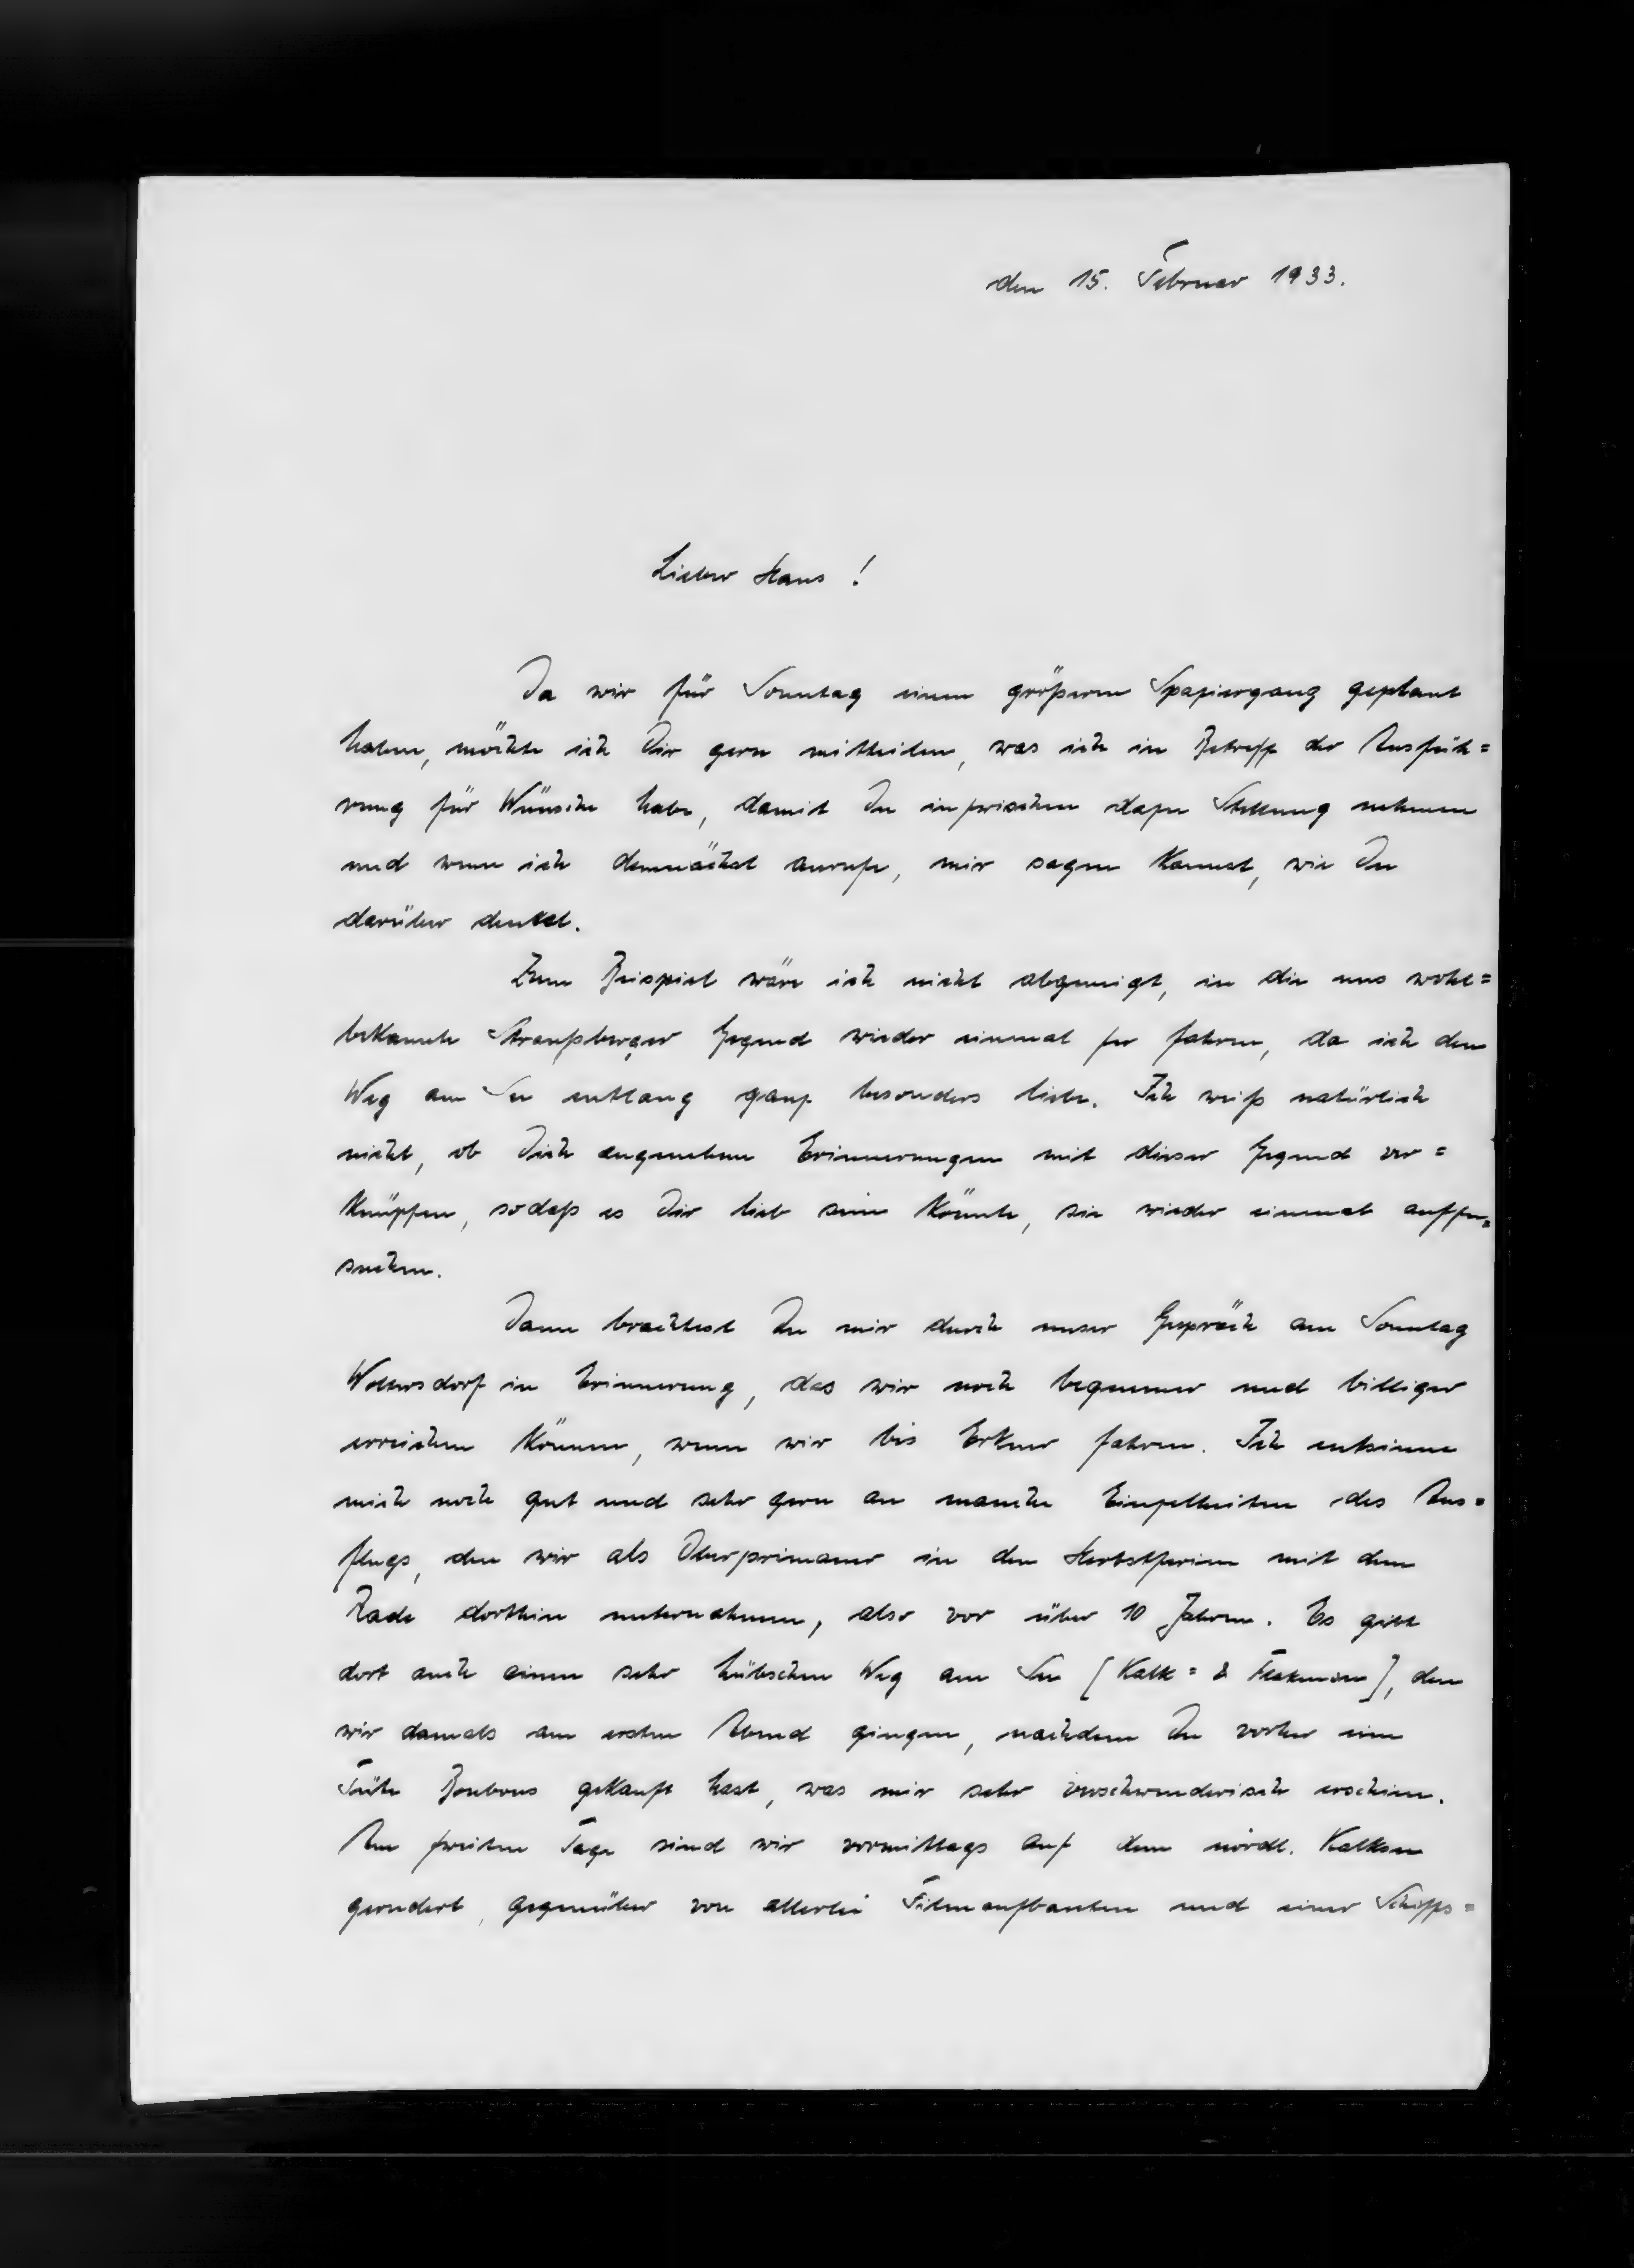 den 15. Februar 1933.
Lieber Hans !
Da wir für Sonntag einen größeren Spaziergang geplant
haben, möchte ich Dir gern mitteilen, was ich in Betreff der Ausfüh=
rung für Wünsche habe, damit Du inzwischen dazu Stellung nehmen
und wenn ich demnächst anrufe, mir sagen kannst, wie Du
darüber denkst.
Zum Beispiel wäre ich nicht abgeneigt, in die uns wohl=
bekannte Straußberger Gegend wieder einmal zu fahren, da ich den
Weg am See entlang ganz besonders liebe. Ich weiß natürlich
nicht, ob Dich angenehme Erinnerungen mit dieser Gegend ver=
knüpfen, sodaß es Dir lieb sein könnte, sie wieder einmal aufzu=
suchen.
Dann brachtest Du mir durch unser Gespräch am Sonntag
Woltersdorf in Erinnerung, das wir noch bequemer und billiger
erreichen können, wenn wir bis Erkner fahren. Ich entsinne
mich noch gut und sehr gern an manche Einzelheiten des Aus=
flugs, den wir als Oberprimaner in den Herbstferien mit dem
Rade dorthin unternahmen, also vor über 10 Jahren. Es gibt
dort auch einen sehr hübschen Weg am See [Kalk= & Flakensee], den
wir damals am ersten Abend gingen, nachdem Du vorher eine
Tüte Bonbons gekauft hast, was mir sehr verschwenderisch erschien.
Am zweiten Tage sind wir vormittags auf dem nördl. Kalksee
gerudert, gegenüber von allerlei Filmaufbauten und einer Schiffs=